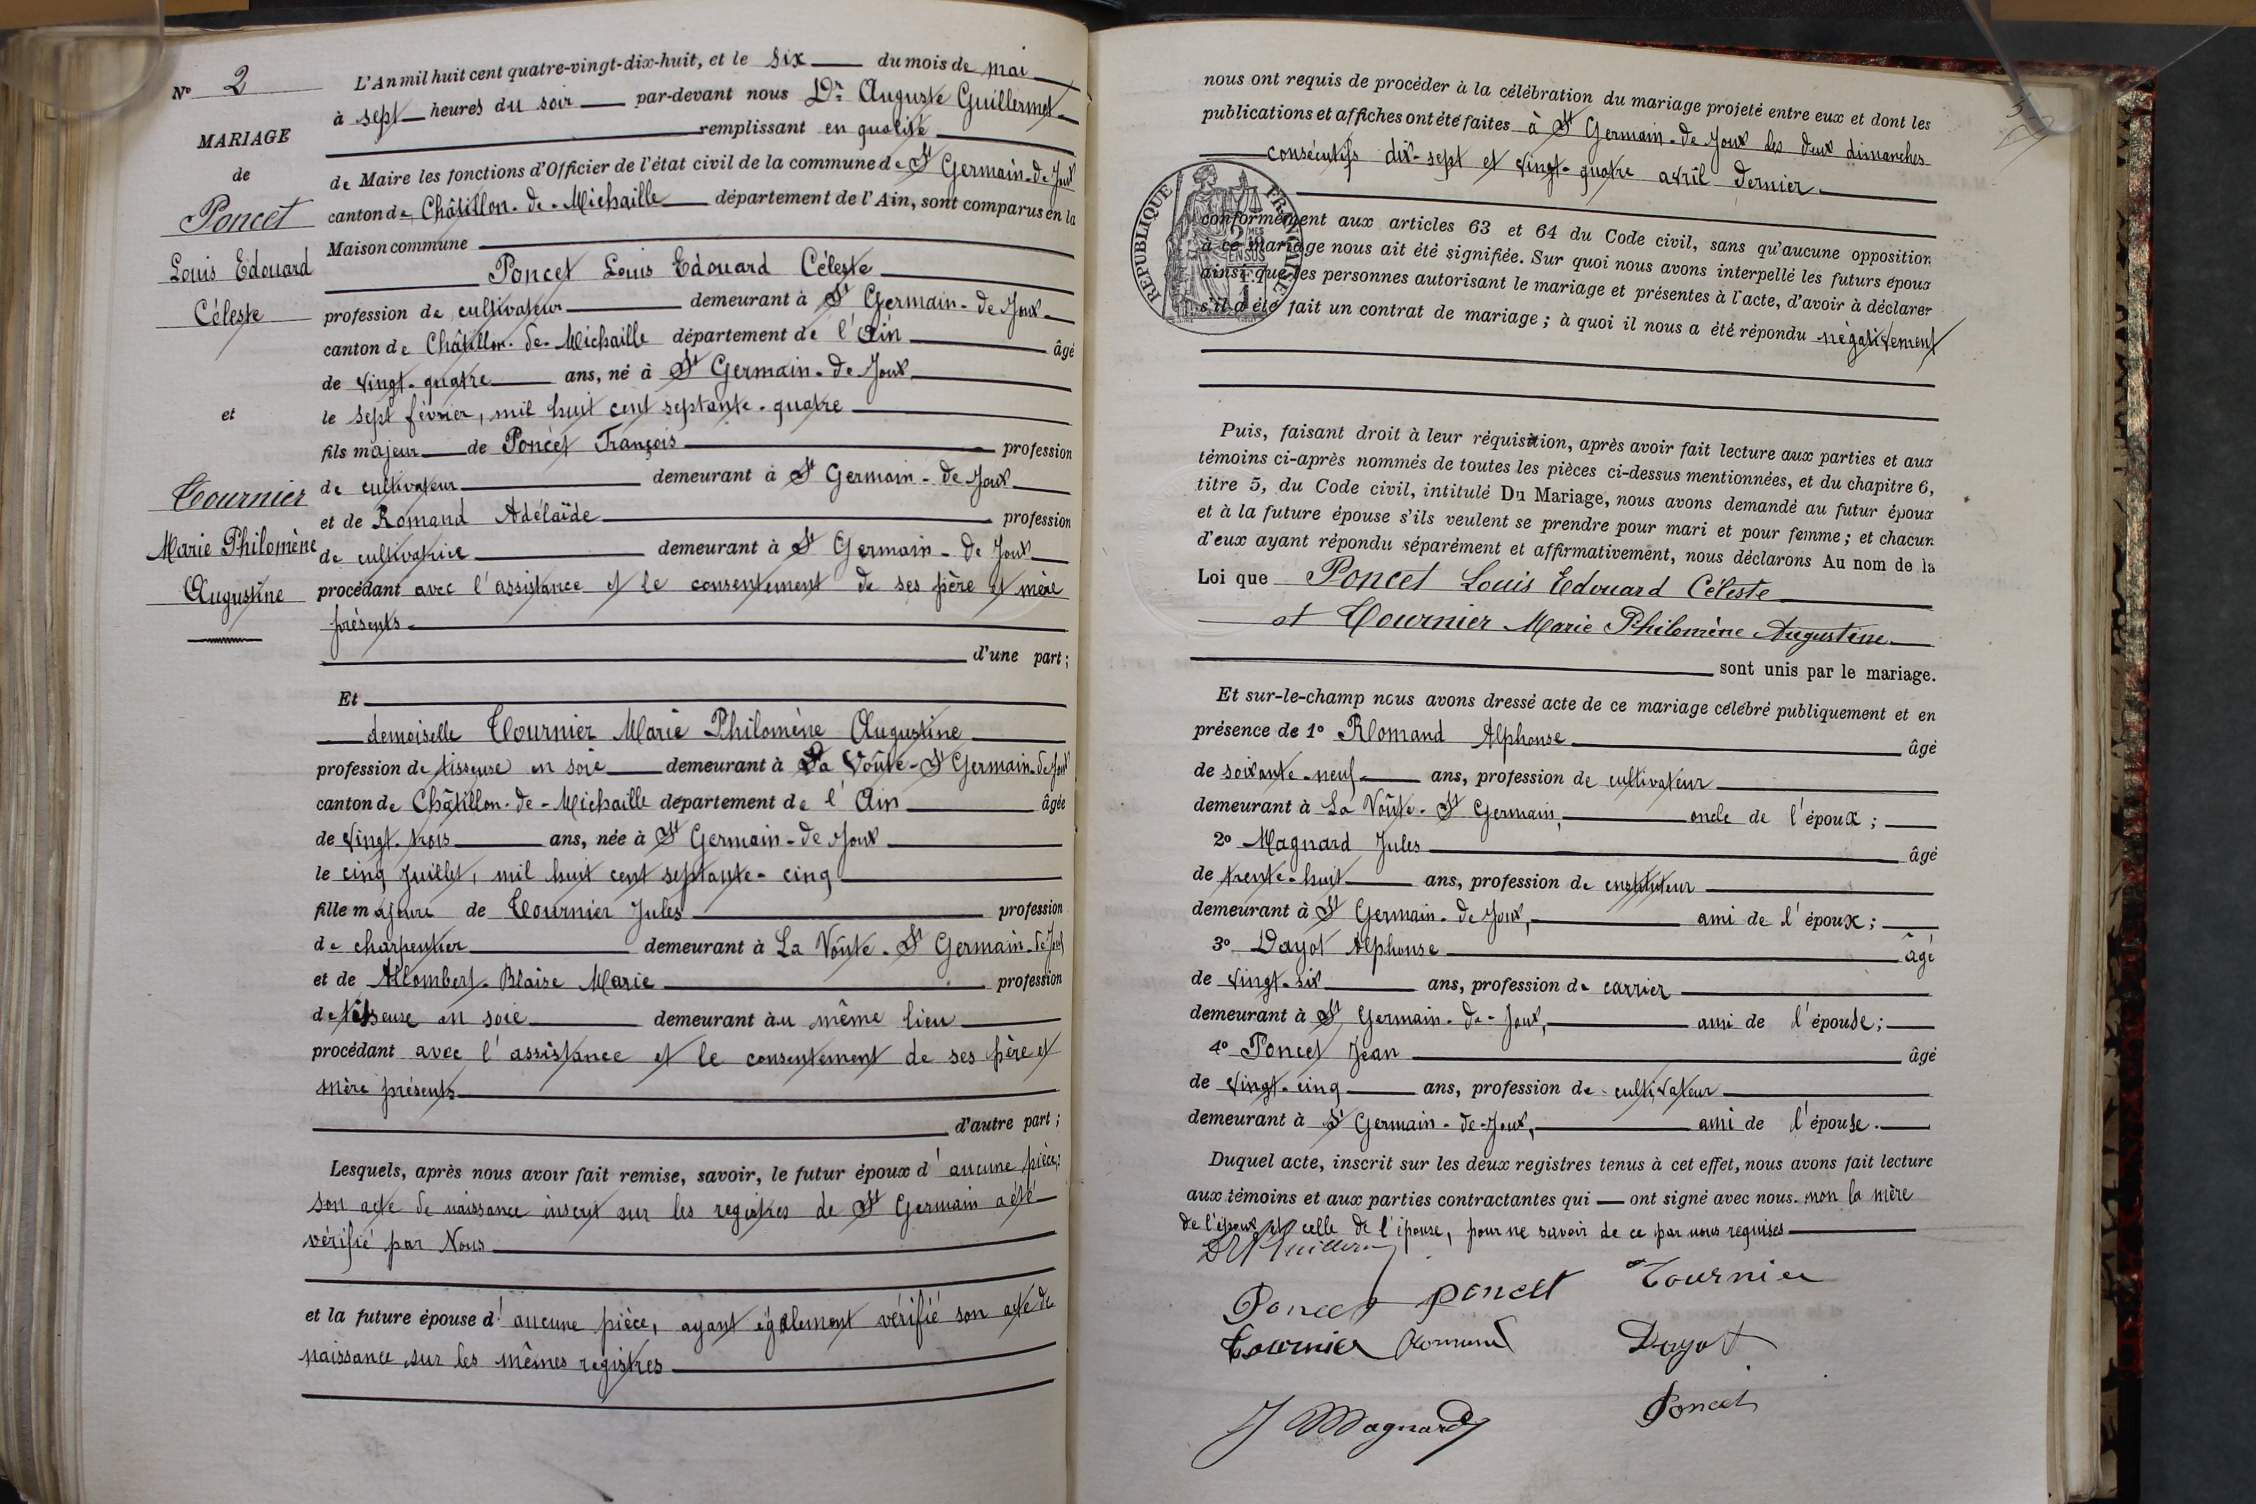 N° 2
MARIAGE
de
Poncet
Louis Edouard
Céleste
et
Tournier
Marie Philomène
Augustine
L'An mil huit cent quatre-vingt-dix-huit, et le six du mois de mai
à sept heures du soir par-devant nous Dr Auguste Guillermet
remplissant en qualité
de Maire les fonctions d'Officier de l'état civil de la commune de St Germain-de Joux
canton de Châtillon-de-Michaille département de l'Ain, sont comparus en la
Maison commune
Poncet Louis Edouard Céleste
profession de cultivateur demeurant à St Germain-de Joux
canton de Châtillon-de-Michaille département de l'Ain âgé
de vingt-quatre ans, né à St Germain-de Joux
le sept février, mil huit cent septante-quatre
fils majeur de Poncet François profession
de cultivateur demeurant à St Germain-de Joux
et de Romand Adélaïde profession
de cultivatrice demeurant à St Germain-de Joux
procédant avec l'assistance et le consentement de ses père et mère
présents
d'une part;
Et
demoiselle Tournier Marie Philomène Augustine
profession de tisseuse en soie demeurant à La Voûte-St Germain-de Joux
canton de Châtillon-de-Michaille département de l'Ain âgée
de vingt-trois ans, née à St Germain-de Joux
le cinq Juillet, mil huit cent septante-cinq
fille majeure de Tournier Jules profession
de charpentier demeurant à La Voûte-St Germain-de Joux
et de Allombert-Blaise Marie profession
de tisseuse en soie demeurant àu même lieu
procédant avec l'assistance et le consentement de ses père et
mère présents
d'autre part;
Lesquels, après nous avoir fait remise, savoir, le futur époux d'aucune pièce;
son acte de naissance inscrit sur les registres de St Germain a été
vérifié par Nous
et la future épouse d'aucune pièce, ayant également vérifié son acte de
naissance sur les mêmes registres
nous ont requis de procéder à la célébration du mariage projeté entre eux et dont les
publications et affiches ont été faites à St Germain-de Joux les deux dimanches
consécutifs dix-sept et vingt-quatre avril dernier
REPUBLIQUE FRANÇAISE
conformément aux articles 63 et 64 du Code civil, sans qu'aucune opposition
à ce mariage nous ait été signifiée. Sur quoi nous avons interpellé les futurs époux
ainsi que les personnes autorisant le mariage et présentes à l'acte, d'avoir à déclarer
s'il a été fait un contrat de mariage; à quoi il nous a été répondu négativement
Puis, faisant droit à leur réquisition, après avoir fait lecture aux parties et aux
témoins ci-après nommés de toutes les pièces ci-dessus mentionnées, et du chapitre 6,
titre 5, du Code civil, intitulé Du Mariage, nous avons demandé au futur époux
et à la future épouse s'ils veulent se prendre pour mari et pour femme; et chacun
d'eux ayant répondu séparément et affirmativement, nous déclarons Au nom de la
Loi que Poncet Louis Edouard Céleste
et Tournier Marie Philomène Augustine
sont unis par le mariage.
Et sur-le-champ nous avons dressé acte de ce mariage célébré publiquement et en
présence de 1° Romand Alphonse âgé
de soixante-neuf ans, profession de cultivateur
demeurant à La Voûte-St Germain, oncle de l'époux;
2° Magnard Jules âgé
de trente-huit ans, profession de instituteur
demeurant à St Germain-de Joux, ami de l'époux;
3° Dayot Alphonse âgé
de vingt-six ans, profession de carrier
demeurant à St Germain-de-Joux, ami de l'épouse;
4° Poncet Jean âgé
de vingt-cinq ans, profession de cultivateur
demeurant à St Germain-de-Joux, ami de l'épouse.
Duquel acte, inscrit sur les deux registres tenus à cet effet, nous avons fait lecture
aux témoins et aux parties contractantes qui ont signé avec nous. non la mère
de l'époux et celle de l'épouse, pour ne savoir de ce par nous requises
Poncet Poncet Tournier
Tournier Romand Dayot
J Magnard Poncet